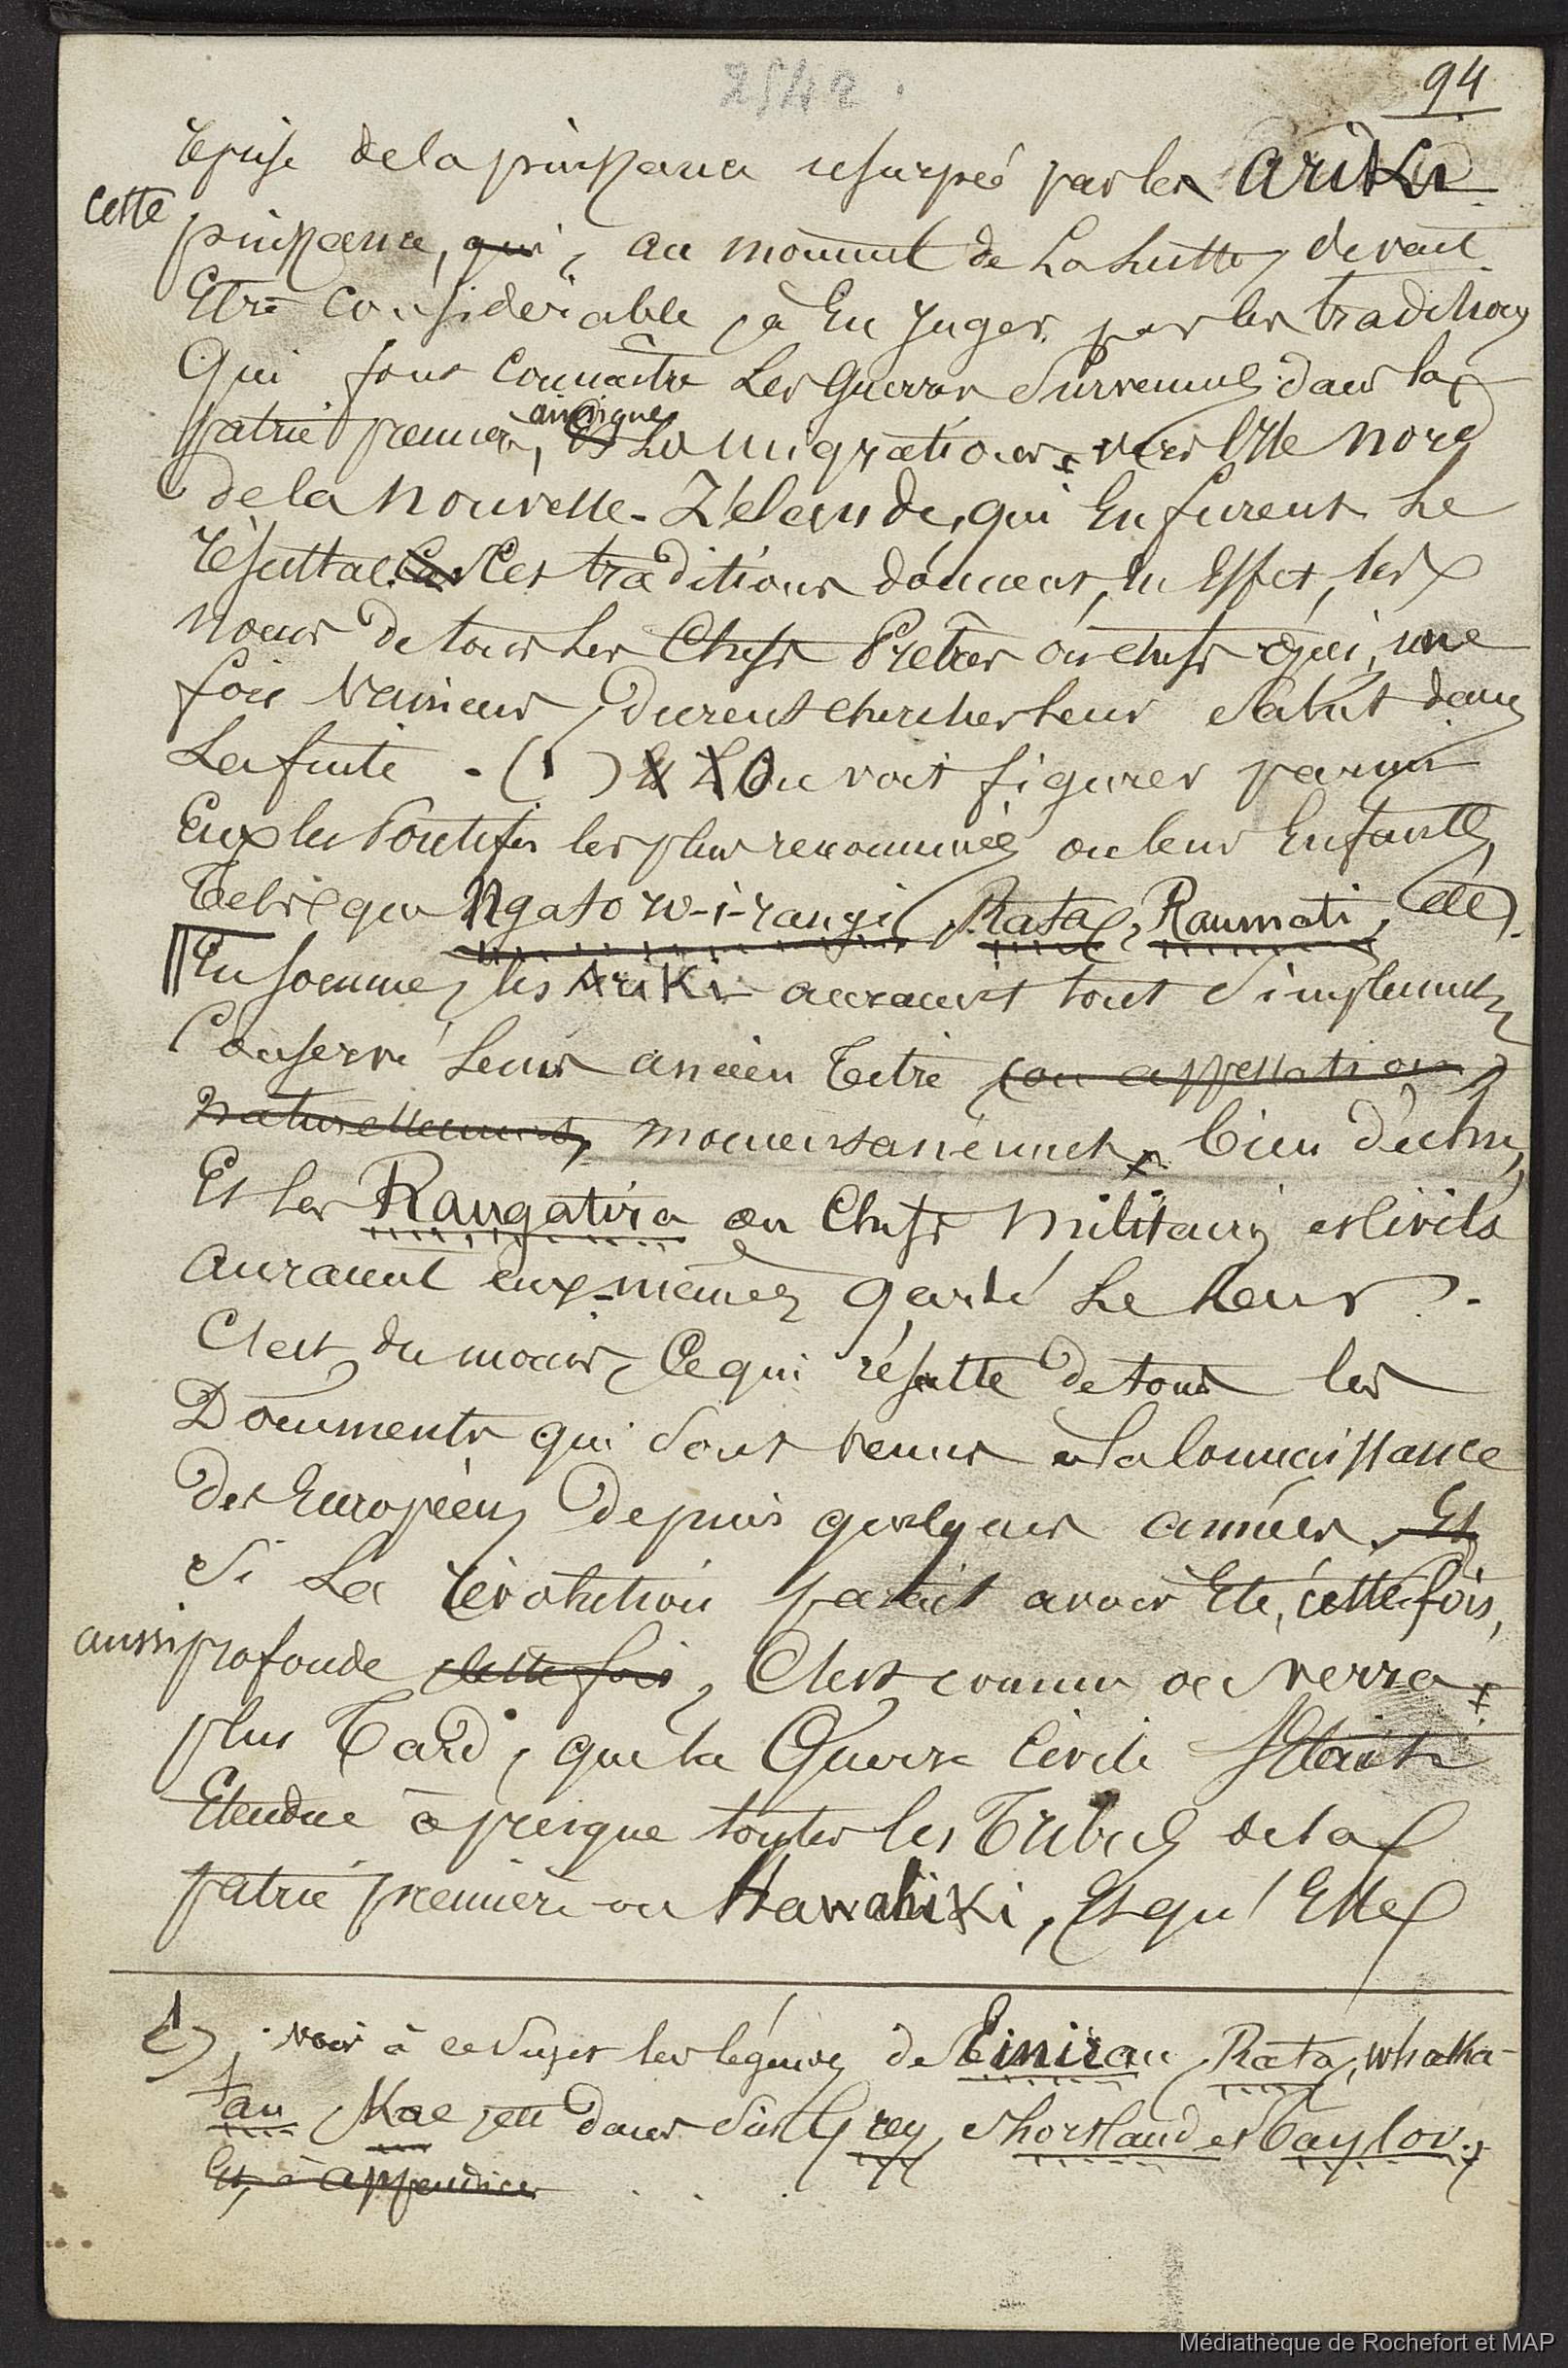 2542.
94
reprise de la puissance usurpée par les Ariki
cette puissance, qui, au moment de la lutte, devait
être considérable, à en juger par les traditions
qui font connaître les guerres survenues dans la
patrie première, ainsi que
et les migrations vers l'Ile nord
de la Nouvelle-Zélande, qui en furent le
résultat. Ces traditions donnent, en effet, les
noms de tous les Chefs Prêtres ou chefs qui, une
fois vaincus, durent chercher leur salut dans
la fuite. (1) On voit figurer parmi
eux les Pontifes les plus renommés ou leurs enfants,
tels que Ngatoro-i-rangi, Rata, Raumati, etc.
En somme, les Ariki auraient tout simplement
conservé leur ancien titre ou appellation,
naturellement, momentanément, bien déchu,
et les Rangatira ou Chefs militaires et civils
auraient eux-mêmes gardé le leur.
C'est du moins ce qui résulte de tous les
Documents qui sont venus à la connaissance
des Européens depuis quelques années. Et
si la révolution paraît avoir été, cette fois,
aussi profonde cette fois, c'est comme on verra
plus tard, que la Guerre Civile s'était
étendue à presque toutes les Tribus de la
patrie première ou Hawahiki, et qu'elle
(1) voir à ce sujet les légendes de Tinirau, Rata, whaka-
tau, Kae, etc. dans Sir Grey, Shortland et Taylor.
Et, à appendice
Médiathèque de Rochefort et MAP